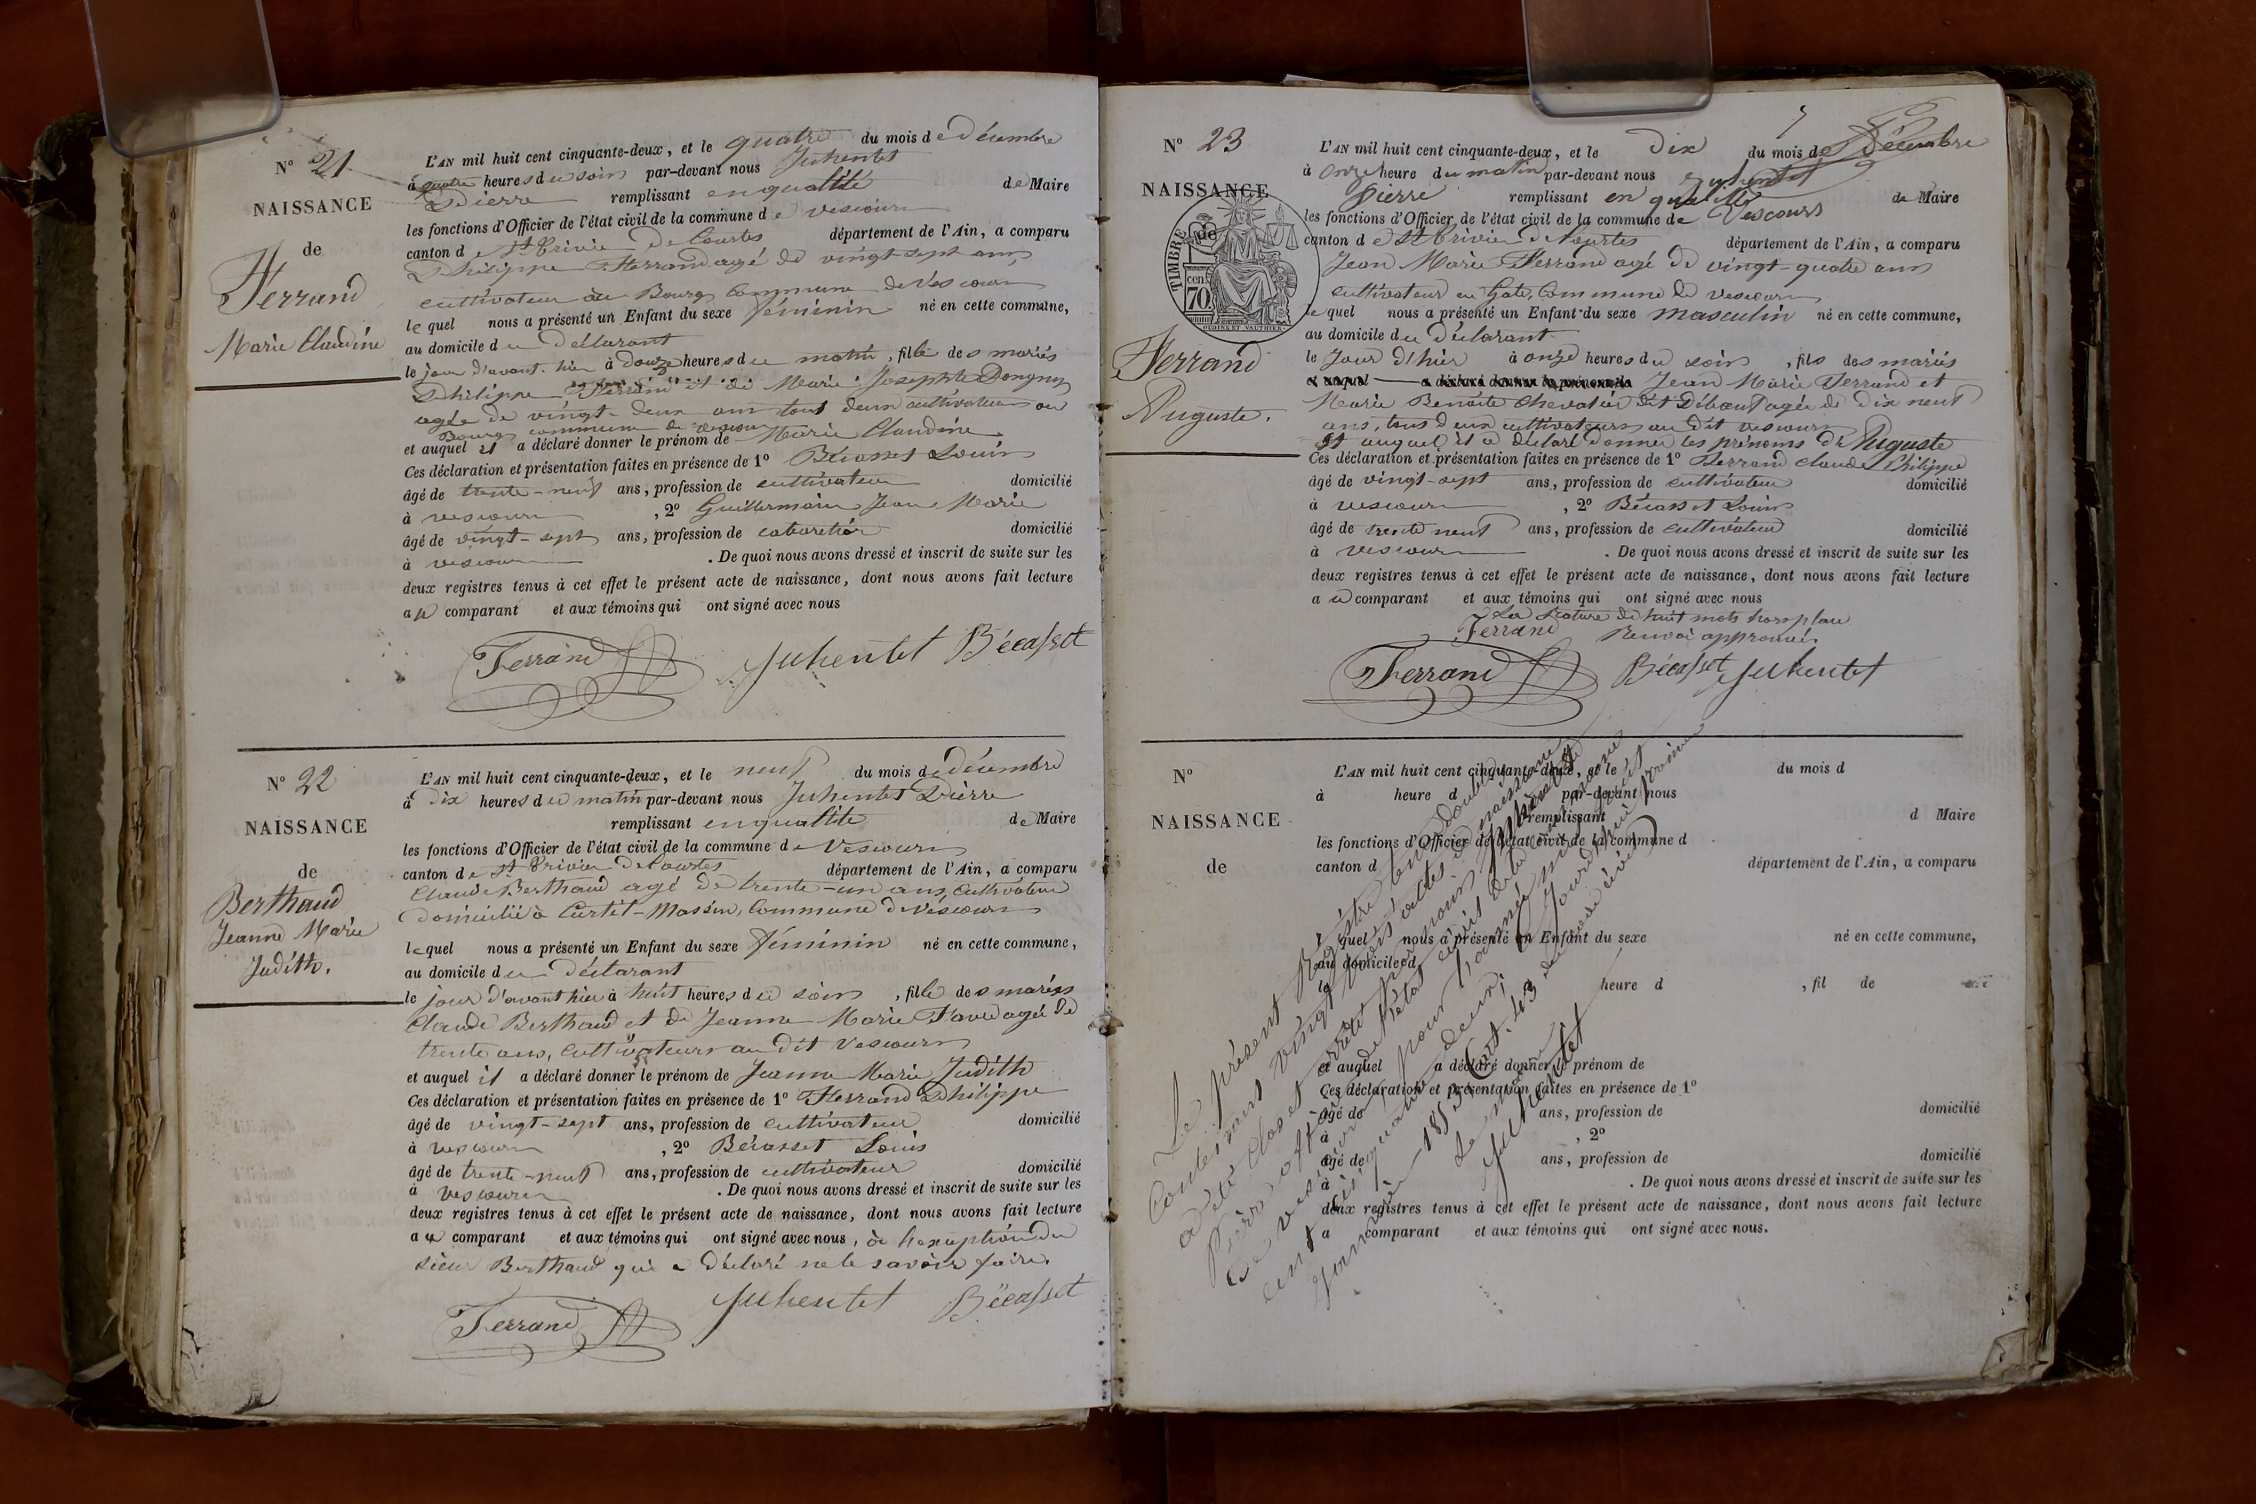 N° 21
NAISSANCE
de
Ferrand
Marie Claudine
L'AN mil huit cent cinquante-deux, et le quatre du mois de décembre
à quatre heures du soir par-devant nous Juhentet
Pierre remplissant en qualité de Maire
les fonctions d'Officier de l'état civil de la commune de vescours
canton de St Trivier De Courtes département de l'Ain, a comparu
Philippe Ferrand agé de vingt-sept ans,
cultivateur au Bourg Commune de Vescours
lequel nous a présenté un Enfant du sexe féminin né en cette commune,
au domicile du Déclarant
le jour d'avant-hier à douze heures du matin, fille des mariés
Philippe Ferrand et de Marie Josephte Donguy
agée de vingt-deux ans tout deux cultivateurs au
Bourg commune de vescours
et auquel il a déclaré donner le prénom de Marie Claudine
Ces déclaration et présentation faites en présence de 1° Bécasset Louis
âgé de trente-neuf ans, profession de cultivateur domicilié
à vescours, 2° Guillermain Jean Marie
âgé de vingt-sept ans, profession de cabaretier domicilié
à vescours. De quoi nous avons dressé et inscrit de suite sur les
deux registres tenus à cet effet le présent acte de naissance, dont nous avons fait lecture
au comparant et aux témoins qui ont signé avec nous
Ferrand Juhentet Bécasset
N° 22
NAISSANCE
de
Berthaud
Jeanne Marie
Judith.
L'AN mil huit cent cinquante-deux, et le neuf du mois de décembre
à dix heures du matin par-devant nous Juhentet Pierre
remplissant en qualité de Maire
les fonctions d'Officier de l'état civil de la commune de Vescours
canton de St Trivier De Courtes département de l'Ain, a comparu
Claude Berthaud agé de trente-un ans, cultivateur
domicilié à Curtit-Massin, Commune de Vescours
lequel nous a présenté un Enfant du sexe féminin né en cette commune,
au domicile du Déclarant
le jour d'avant hier à huit heures du soir, fille des mariés
Claude Berthaud et de Jeanne Marie Favre agée de
trente ans, cultivateurs au dit Vescours
et auquel il a déclaré donner le prénom de Jeanne Marie Judith
Ces déclaration et présentation faites en présence de 1° Ferrand Philippe
âgé de vingt-sept ans, profession de cultivateur domicilié
à vescours, 2° Bécasset Louis
âgé de trente-neuf ans, profession de cultivateur domicilié
à vescours. De quoi nous avons dressé et inscrit de suite sur les
deux registres tenus à cet effet le présent acte de naissance, dont nous avons fait lecture
au comparant et aux témoins qui ont signé avec nous, à l'exception du
sieur Berthaud qui a déclaré ne le savoir faire.
Ferrand Juhentet Bécasset
7
N° 23
NAISSANCE
de
TIMBRE
70
OUDINE ET VAUTHIER
Ferrand
Auguste.
L'AN mil huit cent cinquante-deux, et le dix du mois de Décembre
à onze heure du matin par-devant nous Juhentet
Pierre remplissant en qualité de Maire
les fonctions d'Officier de l'état civil de la commune de Vescours
canton de St Trivier De Courtes département de l'Ain, a comparu
Jean Marie Ferrand agé de vingt-quatre ans
cultivateur en Gate, Commune de vescours
lequel nous a présenté un Enfant du sexe masculin né en cette commune,
au domicile du déclarant
le Jour d'hier à onze heures du soir, fils des mariés
Jean Marie Ferrand et
Marie Benoite Chevalier agée de Dix neuf
ans, tous deux cultivateurs au dit vescours
Et auquel il a déclaré donner les prénoms de Auguste
Ces déclaration et présentation faites en présence de 1° Ferrand Claude Philippe
âgé de vingt-sept ans, profession de cultivateur domicilié
à vescours, 2° Bécasset Louis
âgé de trente neuf ans, profession de cultivateur domicilié
à vescours. De quoi nous avons dressé et inscrit de suite sur les
deux registres tenus à cet effet le présent acte de naissance, dont nous avons fait lecture
au comparant et aux témoins qui ont signé avec nous
La rature de huit mots
Ferrand Renvoi approuvé.
Ferrand Bécasset Juhentet
N°
NAISSANCE
de
L'AN mil huit cent cinquante-deux, et le du mois d
à heure d par-devant nous
remplissant d Maire
les fonctions d'Officier de l'état civil de la commune d
canton d département de l'Ain, a comparu
l quel nous a présenté un Enfant du sexe né en cette commune,
au domicile d
le heure d , fil de
et auquel a déclaré donner le prénom de
Ces déclaration et présentation faites en présence de 1°
âgé de ans, profession de domicilié
à , 2°
âgé de ans, profession de domicilié
à . De quoi nous avons dressé et inscrit de suite sur les
deux registres tenus à cet effet le présent acte de naissance, dont nous avons fait lecture
a comparant et aux témoins qui ont signé avec nous.
Le présent Registre tenu double
Contenant vingt trois actes de naissance
a été clos et arrêté par nous Juhentet
Pierre officier de l'état civil de la commune
de vescours, pour l'année mil huit
cent cinquante deux,
Janvier 1853 (art. 43 du code civil)
Le maire
Juhentet